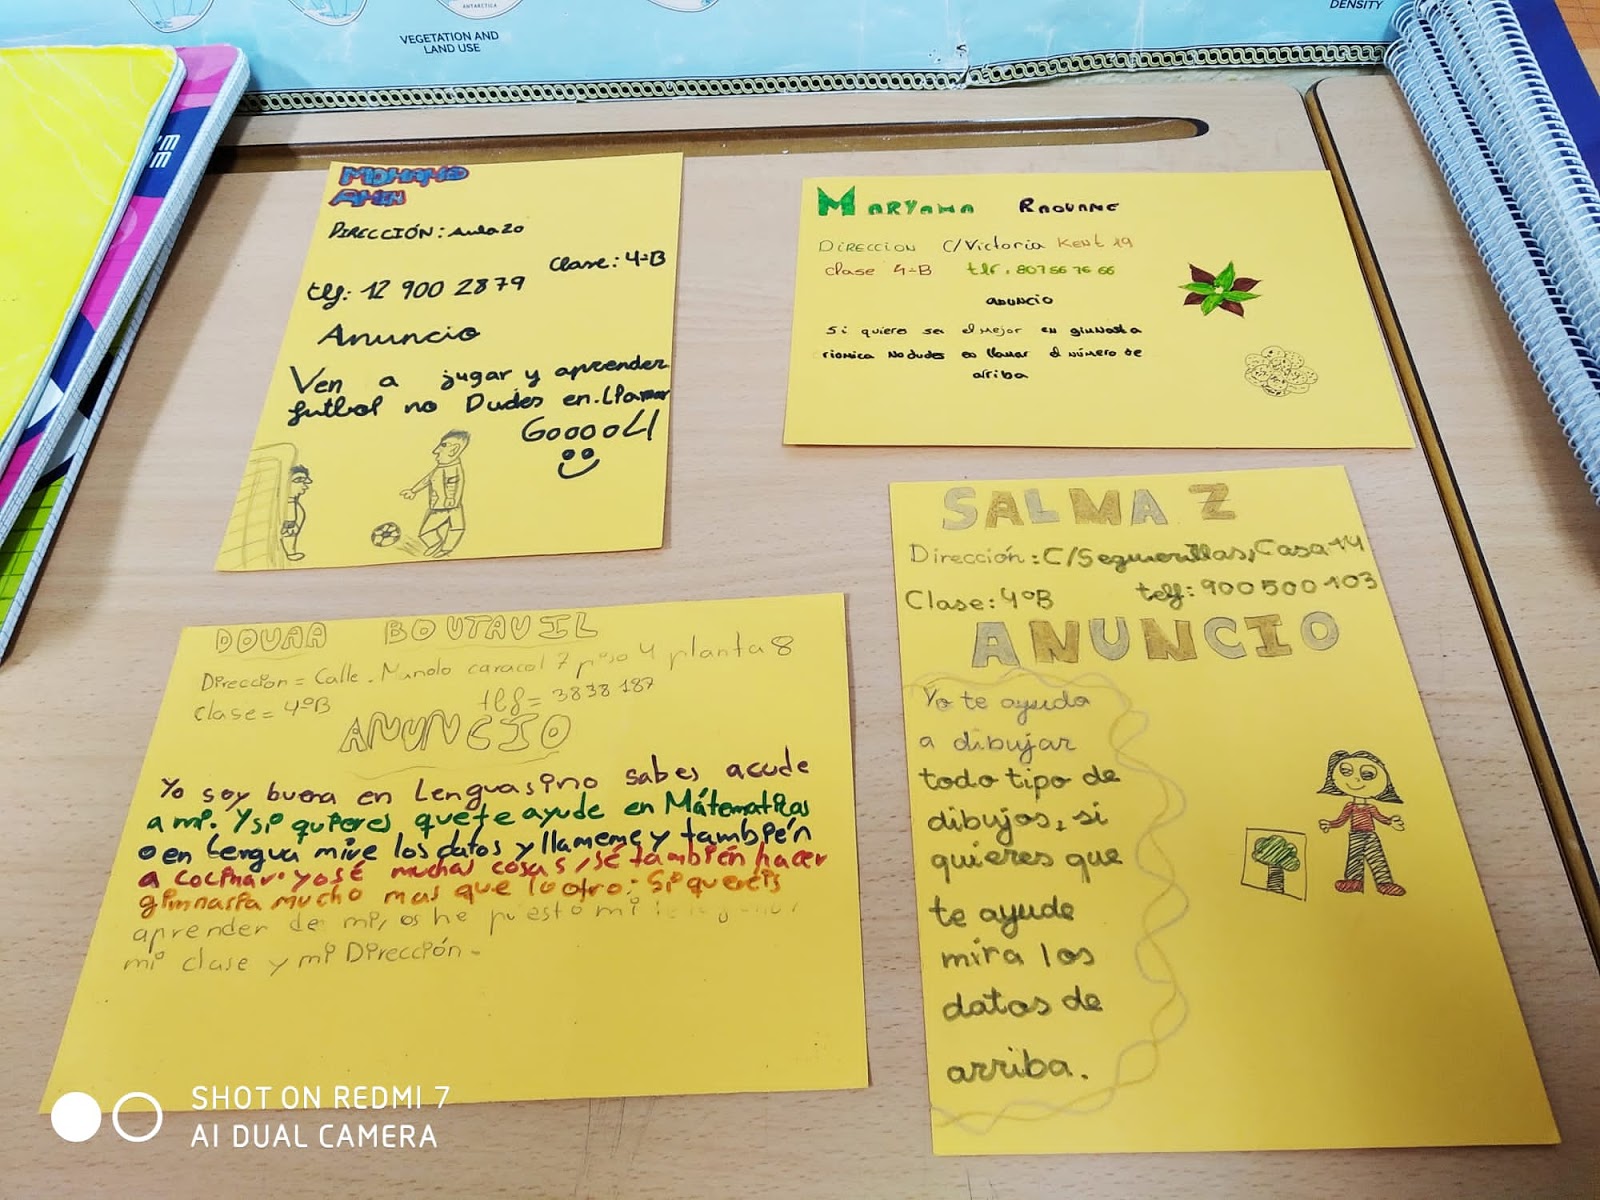 VEGETATION AND
LAND USE
DENSITY
ANTARCTICA
MOHAMED
AMIN
DIRECCIÓN: Aula 20
Clase: 4ºB
tlf: 12 900 2879
Anuncio
Ven a jugar y aprender
futbol no Dudes en llamar
GooooL!
MARYAMA RAOUANE
DIRECCION C/Victoria KENT 19
clase 4ºB tlf. 807 66 76 66
anuncio
si quieres ser el mejor en gimnasta
ritmica no dudes en llamar el número de
arriba
SALMA Z
Dirección: C/Seguerillas, Casa 14
Clase: 4ºB telf: 900 500 103
ANUNCIO
Yo te ayuda
a dibujar
todo tipo de
dibujos, si
quieres que
te ayude
mira los
datos de
arriba.
DOUAA BOUTAUIL
Direccion = Calle. Manolo caracol 7 piso 4 planta 8
Clase = 4ºB tlf = 3838 187
ANUNCIO
Yo soy buena en Lengua sino sabes acude
a mi. Y si quieres que te ayude en Mátematicas
o en Lengua mire los datos y llameme y también
a cocinar. yo sé muchas cosas, sé también hacer
gimnasia mucho mas que lo otro. Si queréis
aprender de mi, os he puesto mi
mi clase y mi Dirección.
SHOT ON REDMI 7
AI DUAL CAMERA